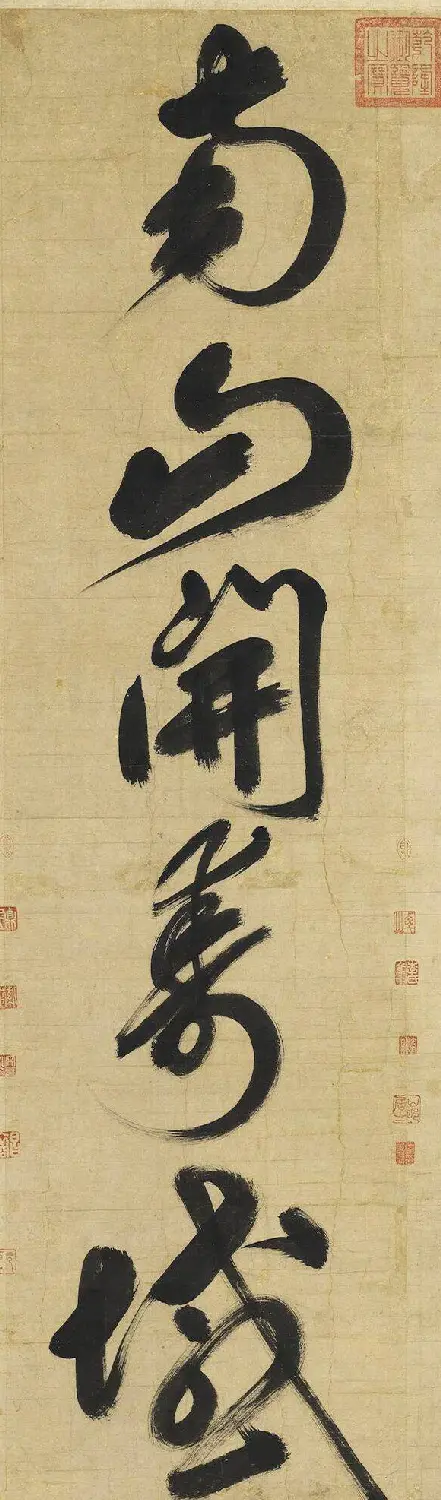 南山開壽域